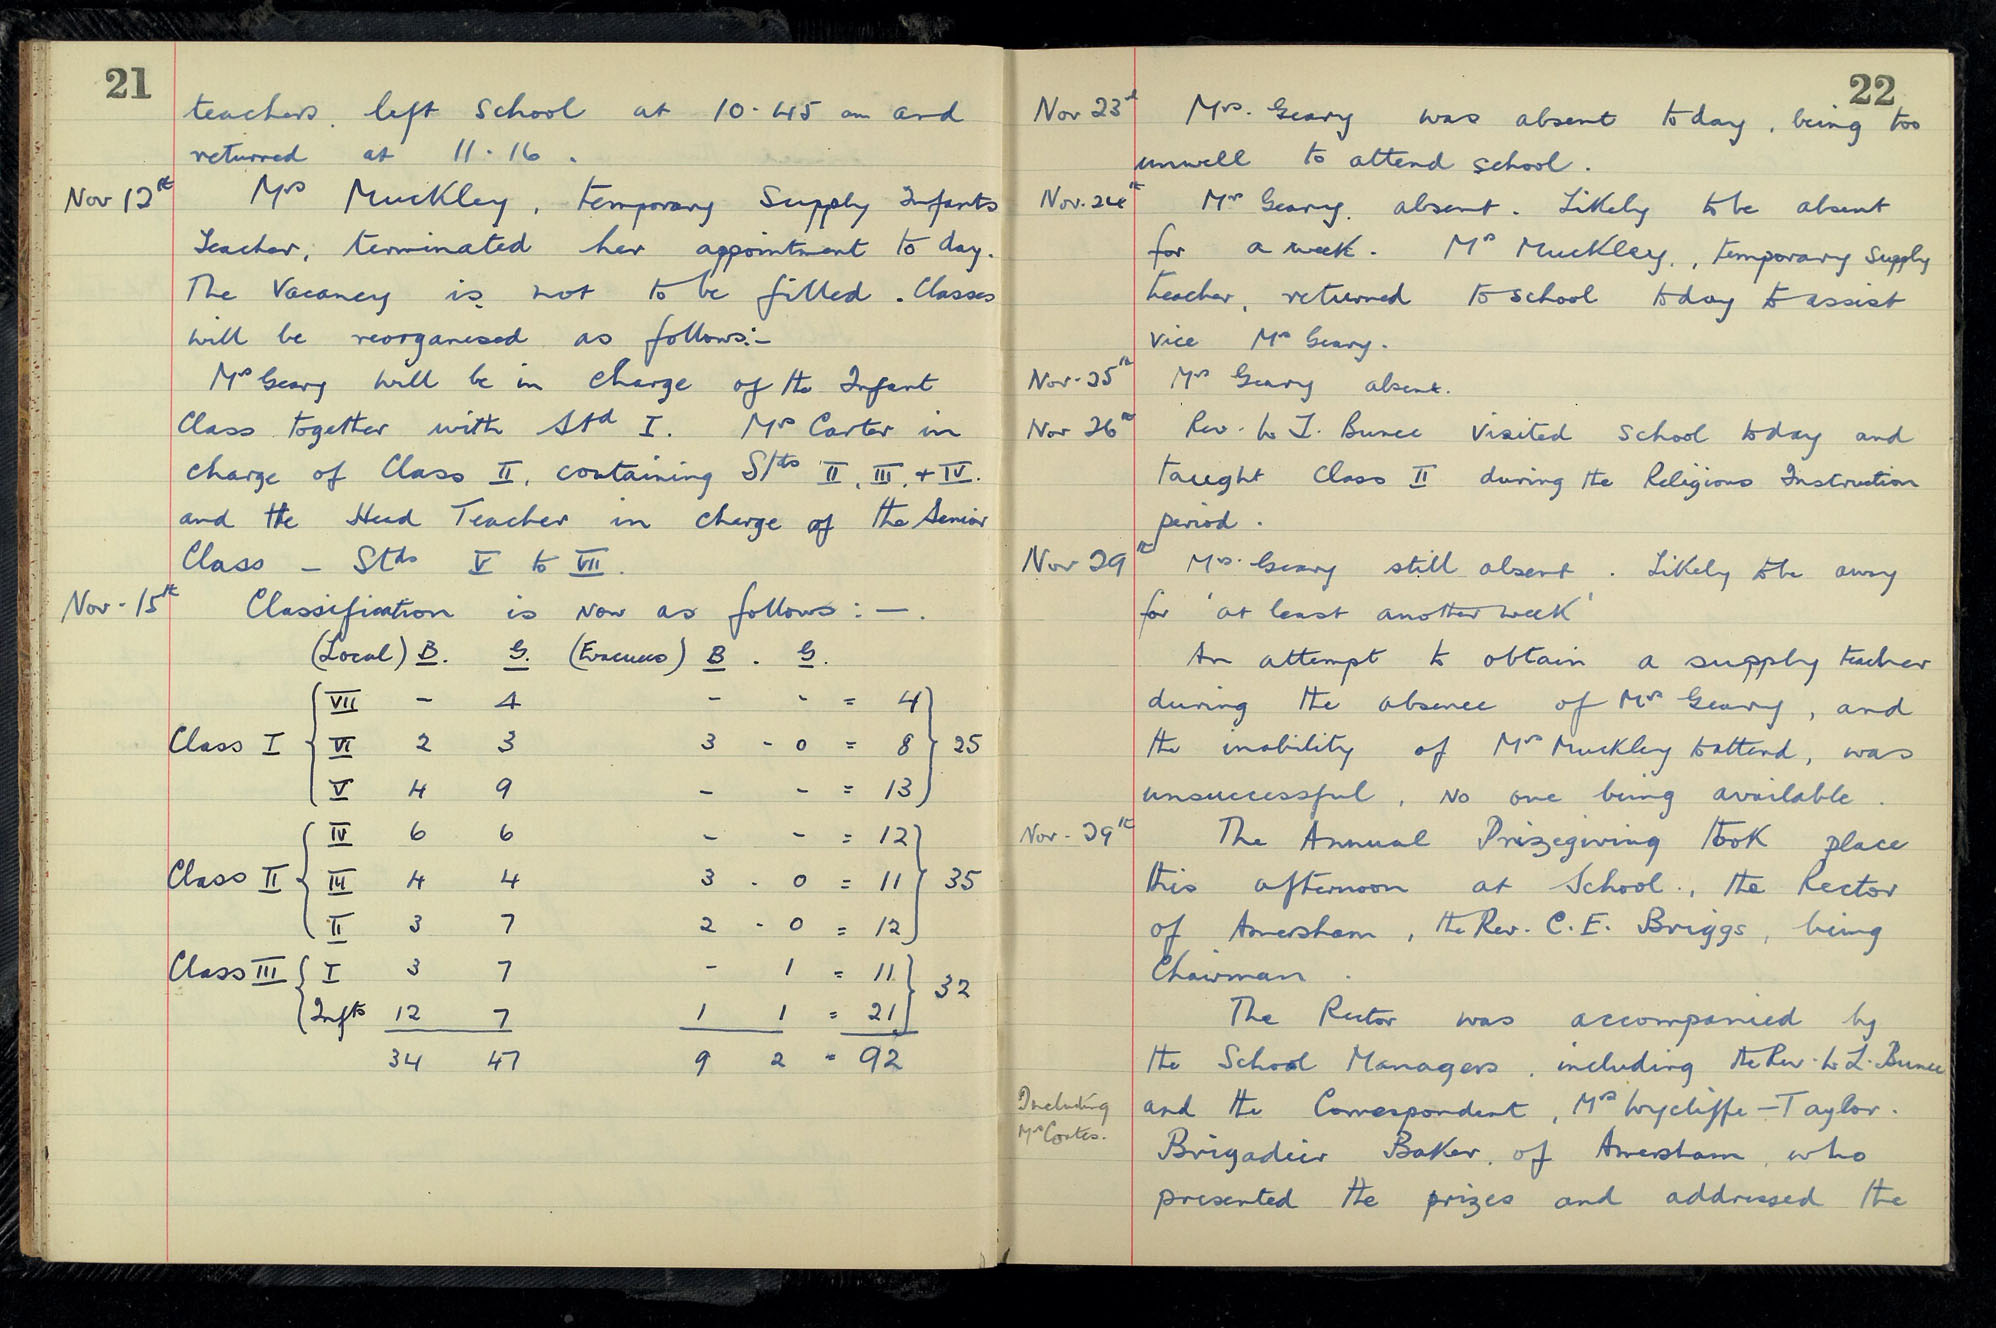 21
teachers. left school at 10.45 am and
returned at 11.16.
Nov 12th Mrs Muckley, temporary Supply Infants
Teacher, terminated her appointment to day.
The Vacancy is not to be filled. Classes
will be reorganised as follows:-
Mrs Geary will be in charge of the Infant
Class together with Std I. Mrs Carter in
charge of Class II, containing Stds II, III, + IV.
and the Head Teacher in charge of the Senior
Class - Stds V to VII.
Nov. 15th Classification is now as follows:-.
(Local) B. G. (Evacuees) B. G.
VII - 4 - - = 4
Class I VI 2 3 3 - 0 = 8 25
V 4 9 - - = 13
IV 6 6 - - = 12
Class II III 4 4 3 - 0 = 11 35
II 3 7 2 - 0 = 12
Class III I 3 7 - 1 = 11 32
Infts 12 7 1 1 = 21
34 47 9 2 = 92
22
Nov 23rd Mrs. Geary was absent today, being too
unwell to attend school.
Nov. 24th Mrs Geary absent. Likely to be absent
for a week. Mrs Muckley, temporary supply
teacher, returned to school today to assist
vice Mrs Geary.
Nov. 25th Mrs Geary absent.
Nov 26th Rev. W L. Bunce visited school today and
taught Class II during the Religious Instruction
period.
Nov 29th Mrs. Geary still absent. Likely to be away
for 'at least another week'
An attempt to obtain a supply teacher
during the absence of Mrs Geary, and
the inability of Mrs Muckley to attend, was
unsuccessful, no one being available.
Nov. 29th The Annual Prizegiving took place
this afternoon at School, the Rector
of Amersham, the Rev. C. E. Briggs, being
Chairman.
The Rector was accompanied by
the School Managers, including the Rev. W L. Bunce
and the Correspondent, Mrs Wycliffe-Taylor.
Including
Mrs Coates.
Brigadier Baker, of Amersham, who
presented the prizes and addressed the